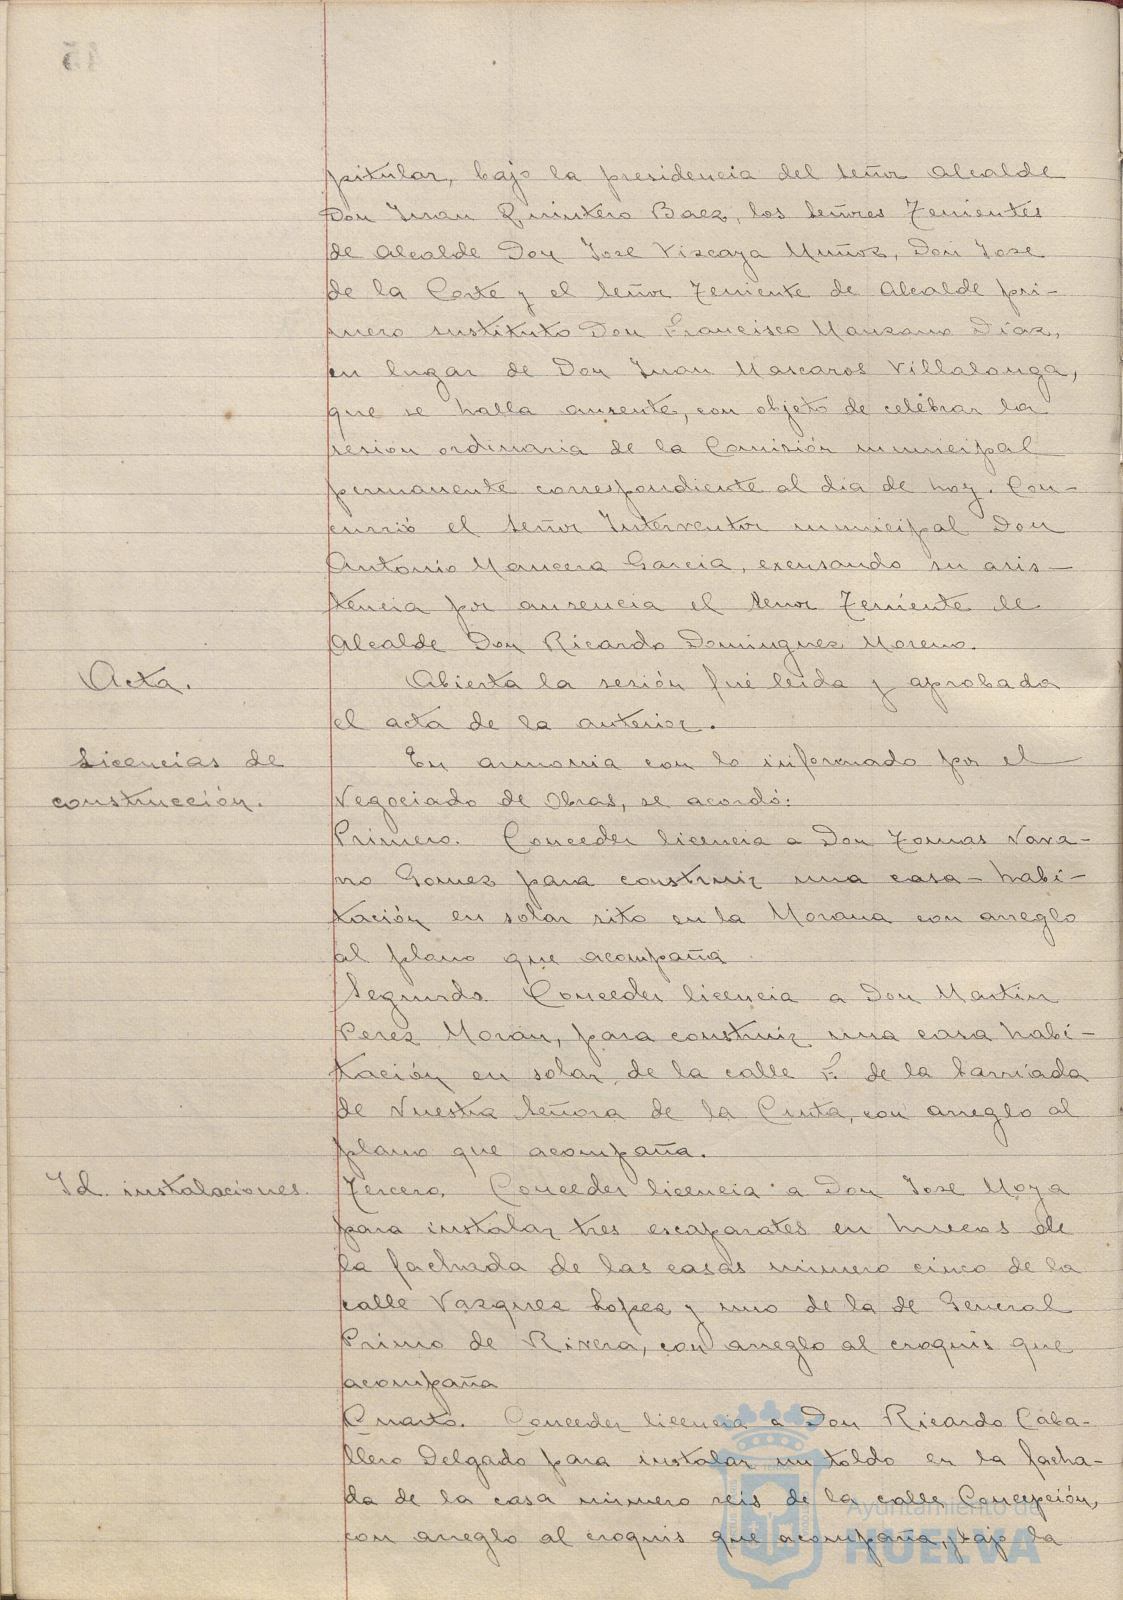 pitular, bajo la presidencia del señor Alcalde
Don Juan Quintero Baez, los señores Tenientes
de Alcalde Don Jose Viscaya Muñoz, Don Jose
de la Corte y el señor Teniente de Alcalde pri-
mero sustituto Don Francisco Manzano Díaz,
en lugar de Don Juan Mascaros Villalonga,
que se halla ausente, con objeto de celebrar la
sesion ordinaria de la Comisión municipal
permanente correspondiente al dia de hoy. Con-
currió el señor Interventor municipal Don
Antonio Mancera Garcia, excusando su asis-
tencia por ausencia el señor Teniente de
Alcalde Don Ricardo Dominguez Moreno.
Acta.
Abierta la sesión fué leida y aprobada
el acta de la anterior.
Licencias de
construcción.
En armonia con lo informado por el
Negociado de Obras, se acordó:
Primero. Conceder licencia a Don Tomas Nava-
rro Gomez para construir una casa-habi-
tación en solar sito en la Morana con arreglo
al plano que acompaña
Segundo. Conceder licencia a Don Martin
Perez Morán, para construir una casa habi-
tación en solar de la calle F. de la barriada
de Nuestra Señora de la Cinta, con arreglo al
plano que acompaña.
Id. instalaciones.
Tercero. Conceder licencia a Don Jose Moya
para instalar tres escaparates en huecos de
la fachada de las casas número cinco de la
calle Vazquez Lopez y uno de la de General
Primo de Rivera, con arreglo al croquis que
acompaña
Cuarto. Conceder licencia a Don Ricardo Caba-
llero Delgado para instalar un toldo en la facha-
da de la casa número seis de la calle Concepción,
con arreglo al croquis que acompaña, bajo la
Ayuntamiento de
HUELVA